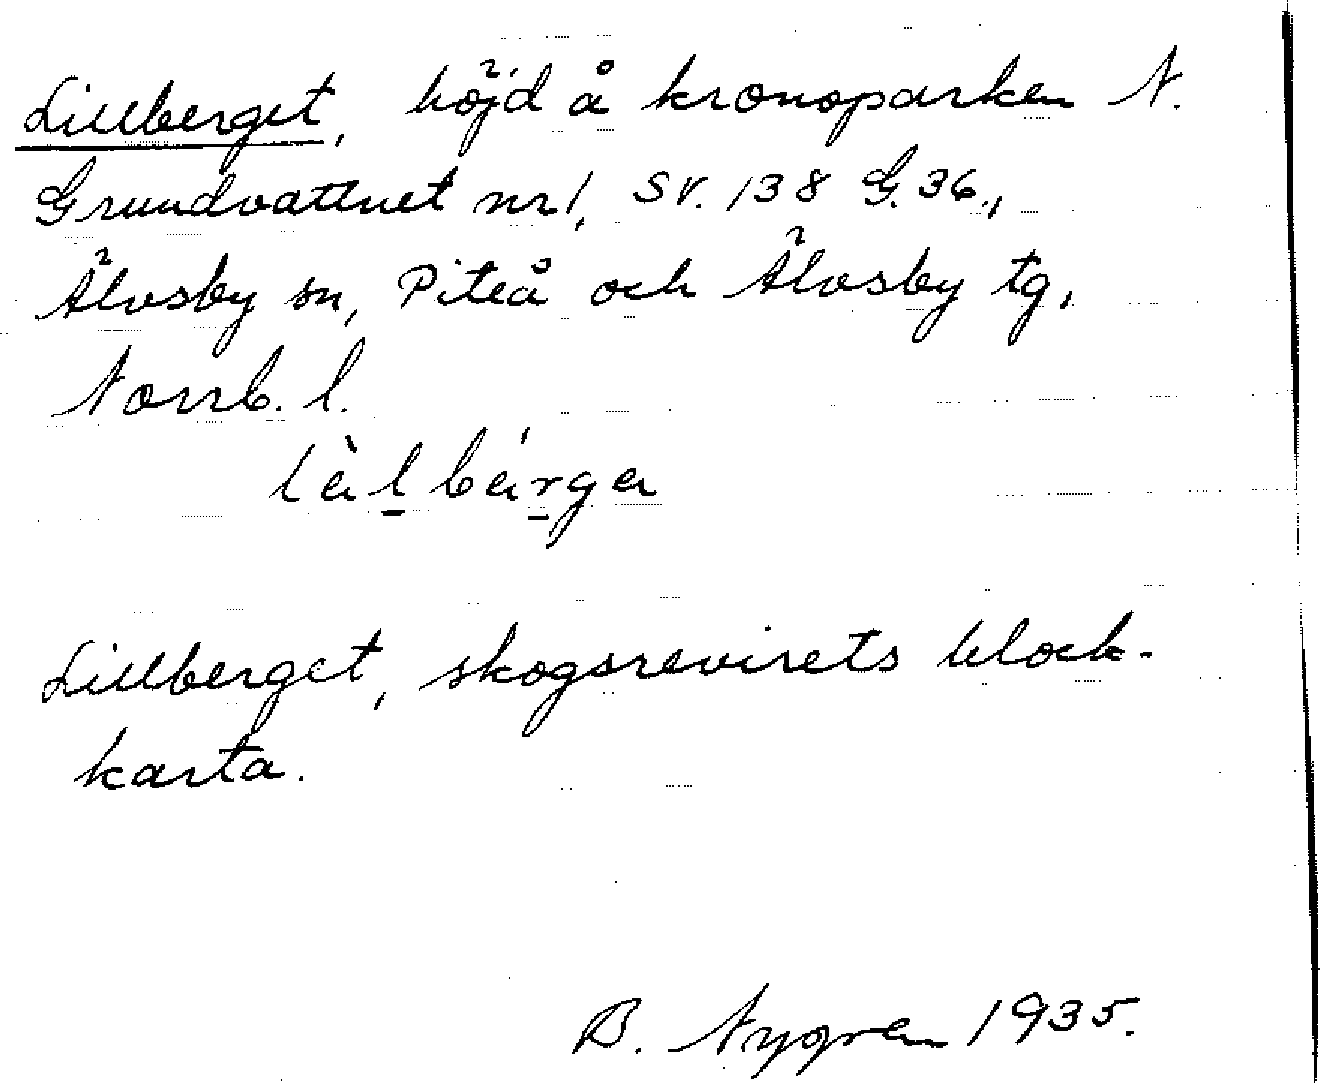 Lillberget, höjd å kronoparken N.
Grundvattnet nr 1, SV. 138 G. 36.,
Älvsby sn, Piteå och Älvsby tg,
Norrb. l.
Lillberget, skogsrevirets block-
karta.
B. Nygren 1935.